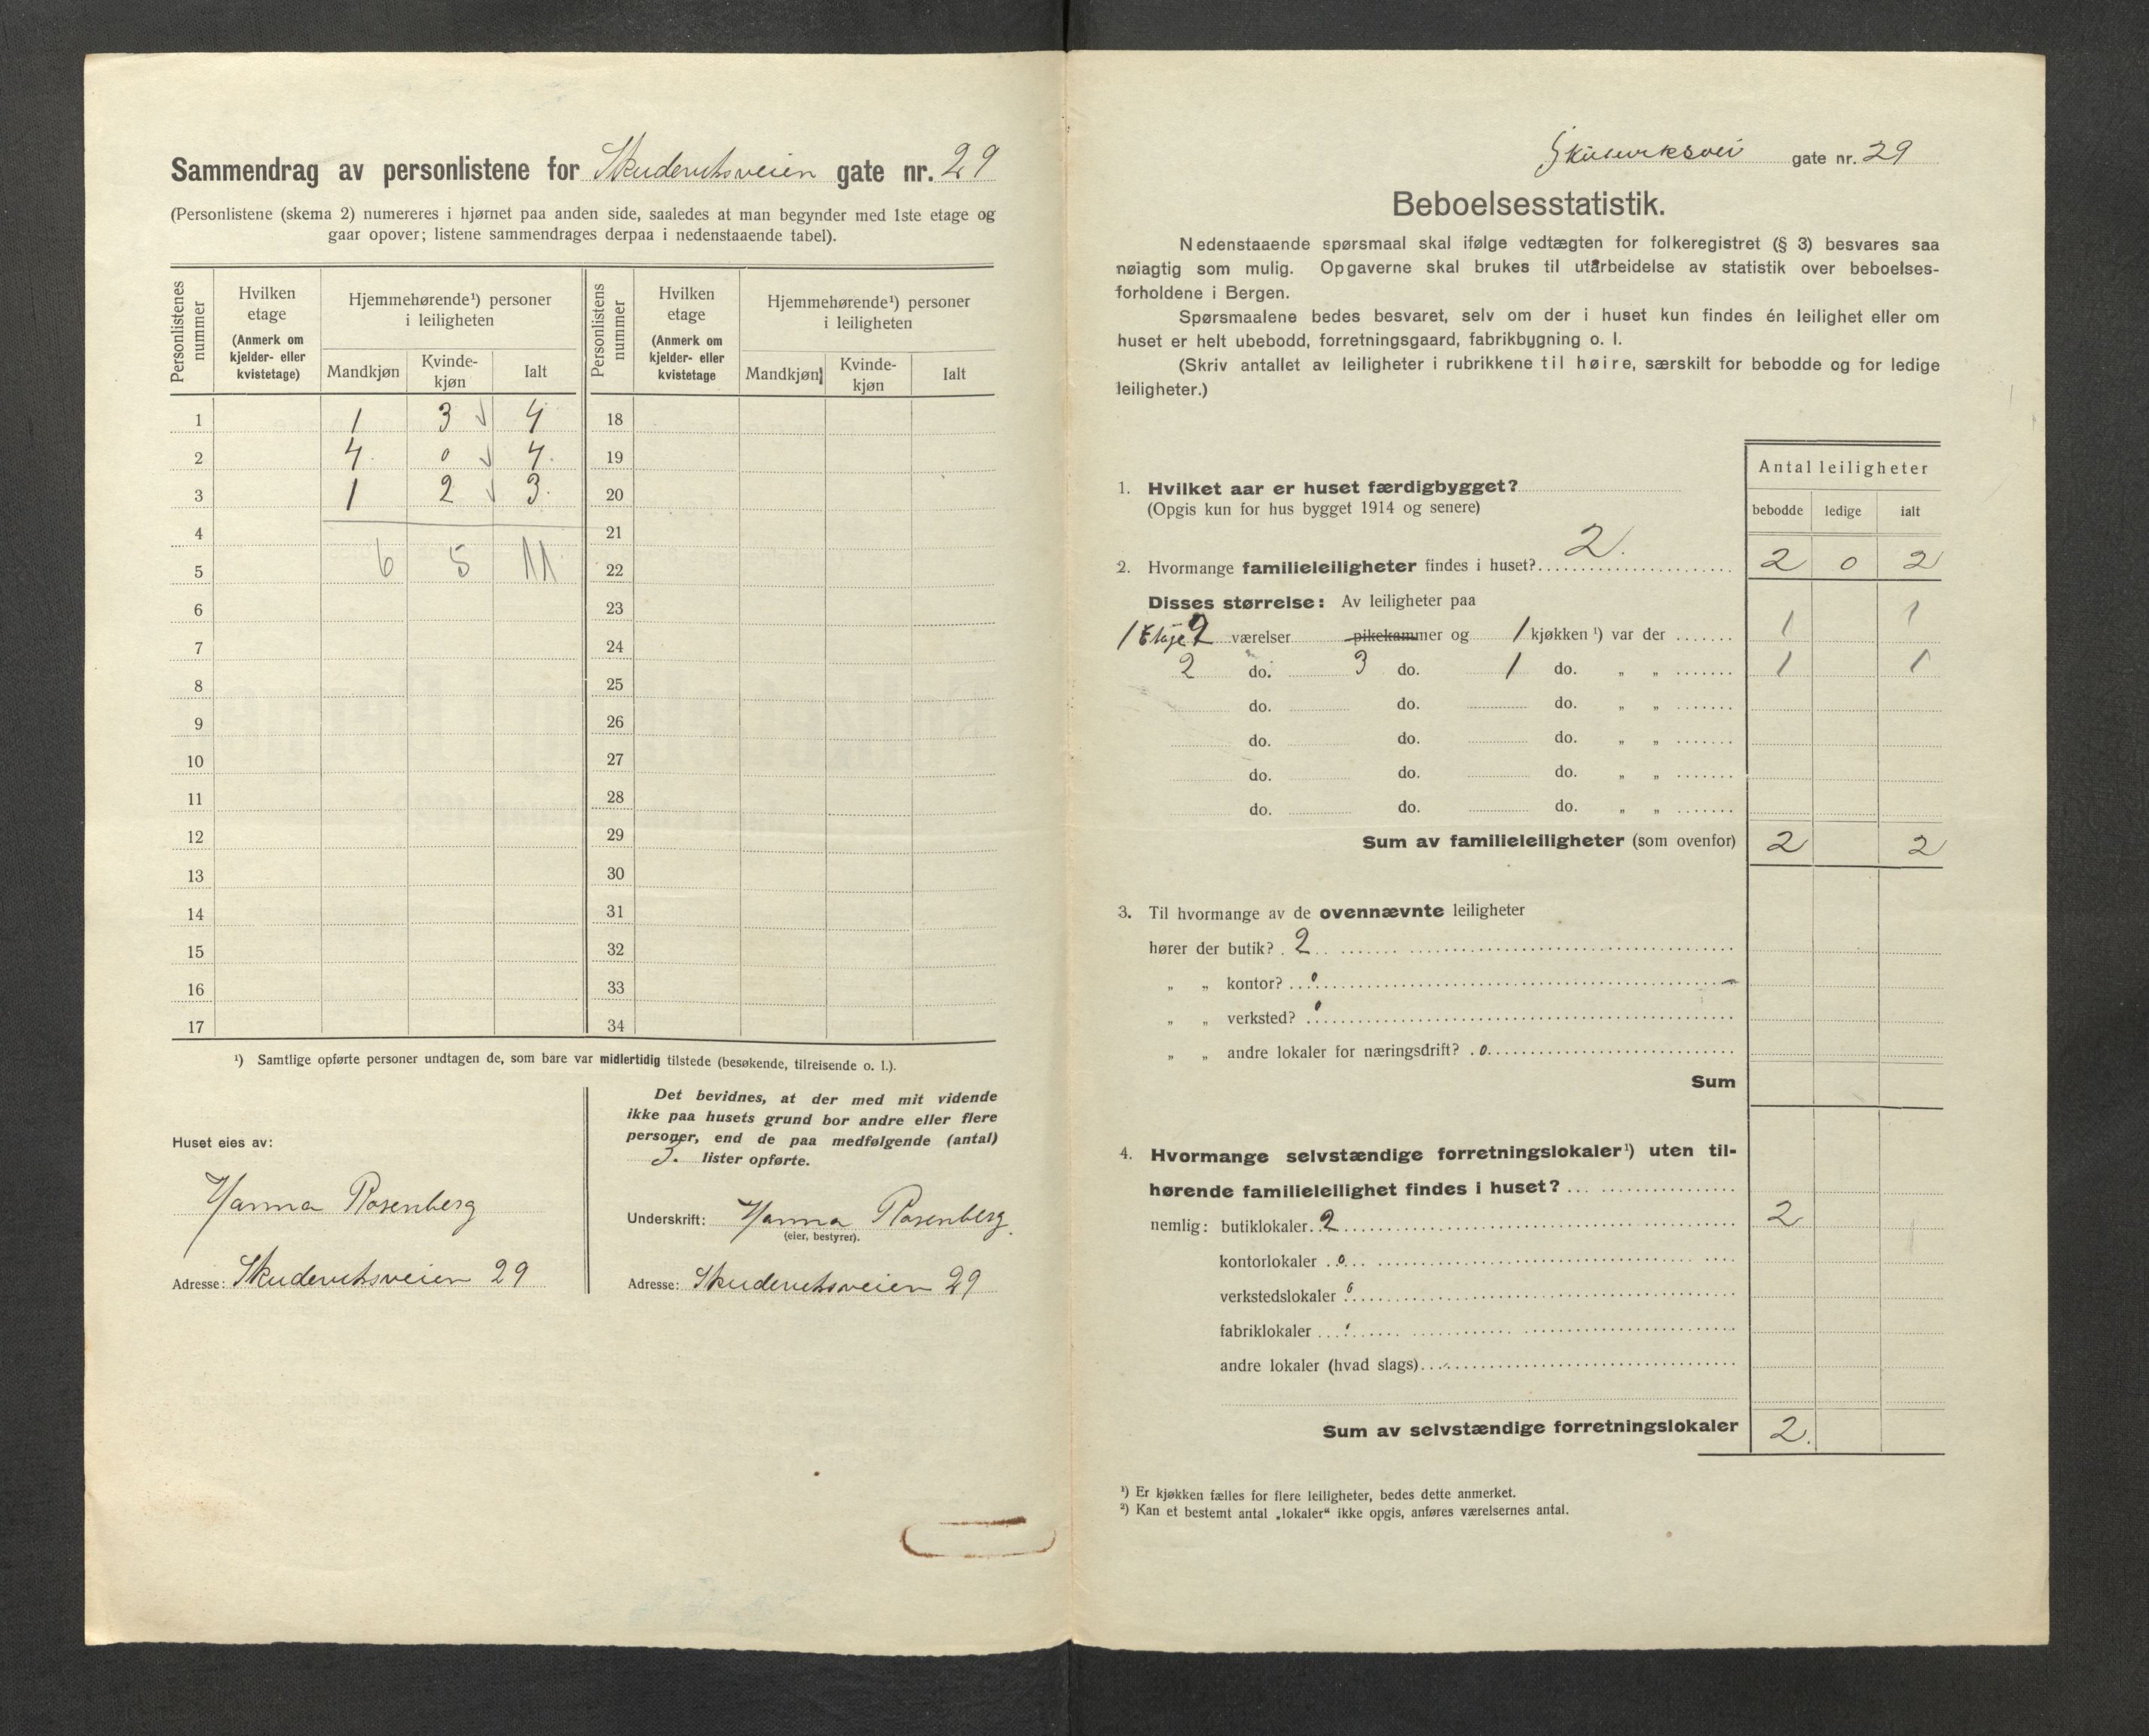 Sammendrag av personlistene for Skuderviksveien gate nr. 29
(Personlistene (skema 2) numereres i hjørnet paa anden side, saaledes at man begynder med 1ste etage og
gaar opover; listene sammendrages derpaa i nedenstaaende tabel).
Personlistenes nummer Hvilken etage (Anmerk om kjelder- eller kvistetage) Hjemmehørende¹) personer i leiligheten Mandkjøn Kvinde-kjøn Ialt
Personlistens nummer Hvilken etage (Anmerk om kjelder- eller kvistetage Hjemmehørende¹) personer i leiligheten Mandkjøn Kvinde-kjøn Ialt
1 1 3 4 18
2 4. 0 4. 19
3 1 2 3. 20
4 21
5 6 5 11 22
6 23
7 24
8 25
9 26
10 27
11 28
12 29
13 30
14 31
15 32
16 33
17 34
¹) Samtlige opførte personer undtagen de, som bare var midlertidig tilstede (besøkende, tilreisende o. l.).
Huset eies av:
Hanna Rosenberg
Adresse: Skuderviksveien 29
Det bevidnes, at der med mit vidende
ikke paa husets grund bor andre eller flere
personer, end de paa medfølgende (antal)
3. lister opførte.
Underskrift: Hanna Rosenberg.
(eier, bestyrer).
Adresse: Skuderviksveien 29
gate nr. 29
Beboelsesstatistik.
Nedenstaaende spørsmaal skal ifølge vedtægten for folkeregistret (§ 3) besvares saa
nøiagtig som mulig. Opgaverne skal brukes til utarbeidelse av statistik over beboelses-
forholdene i Bergen.
Spørsmaalene bedes besvaret, selv om der i huset kun findes én leilighet eller om
huset er helt ubebodd, forretningsgaard, fabrikbygning o. l.
(Skriv antallet av leiligheter i rubrikkene til høire, særskilt for bebodde og for ledige
leiligheter.)
Antal leiligheter
bebodde ledige ialt
1. Hvilket aar er huset færdigbygget?
(Opgis kun for hus bygget 1914 og senere)
2. Hvormange familieleiligheter findes i huset? 2. 2 0 2
Disses størrelse: Av leiligheter paa
1 Etage 2 værelser pikekammer og 1 kjøkken ¹) var der 1 1
2 do. 3 do. 1 do. „ „ 1 1
do. do. do. „ „
do. do. do. „ „
do. do. do. „ „
do. do. do. „ „
Sum av familieleiligheter (som ovenfor) 2 2
3. Til hvormange av de ovennævnte leiligheter
hører der butik? 2
„ „ kontor? 0
„ „ verksted? 0
„ „ andre lokaler for næringsdrift? 0
Sum
4. Hvormange selvstændige forretningslokaler¹) uten til-
hørende familieleilighet findes i huset?
nemlig: butiklokaler 2 2
kontorlokaler 0
verkstedslokaler 0
fabriklokaler
andre lokaler (hvad slags)
Sum av selvstændige forretningslokaler 2.
¹) Er kjøkken fælles for flere leiligheter, bedes dette anmerket.
²) Kan et bestemt antal „lokaler“ ikke opgis, anføres værelsernes antal.